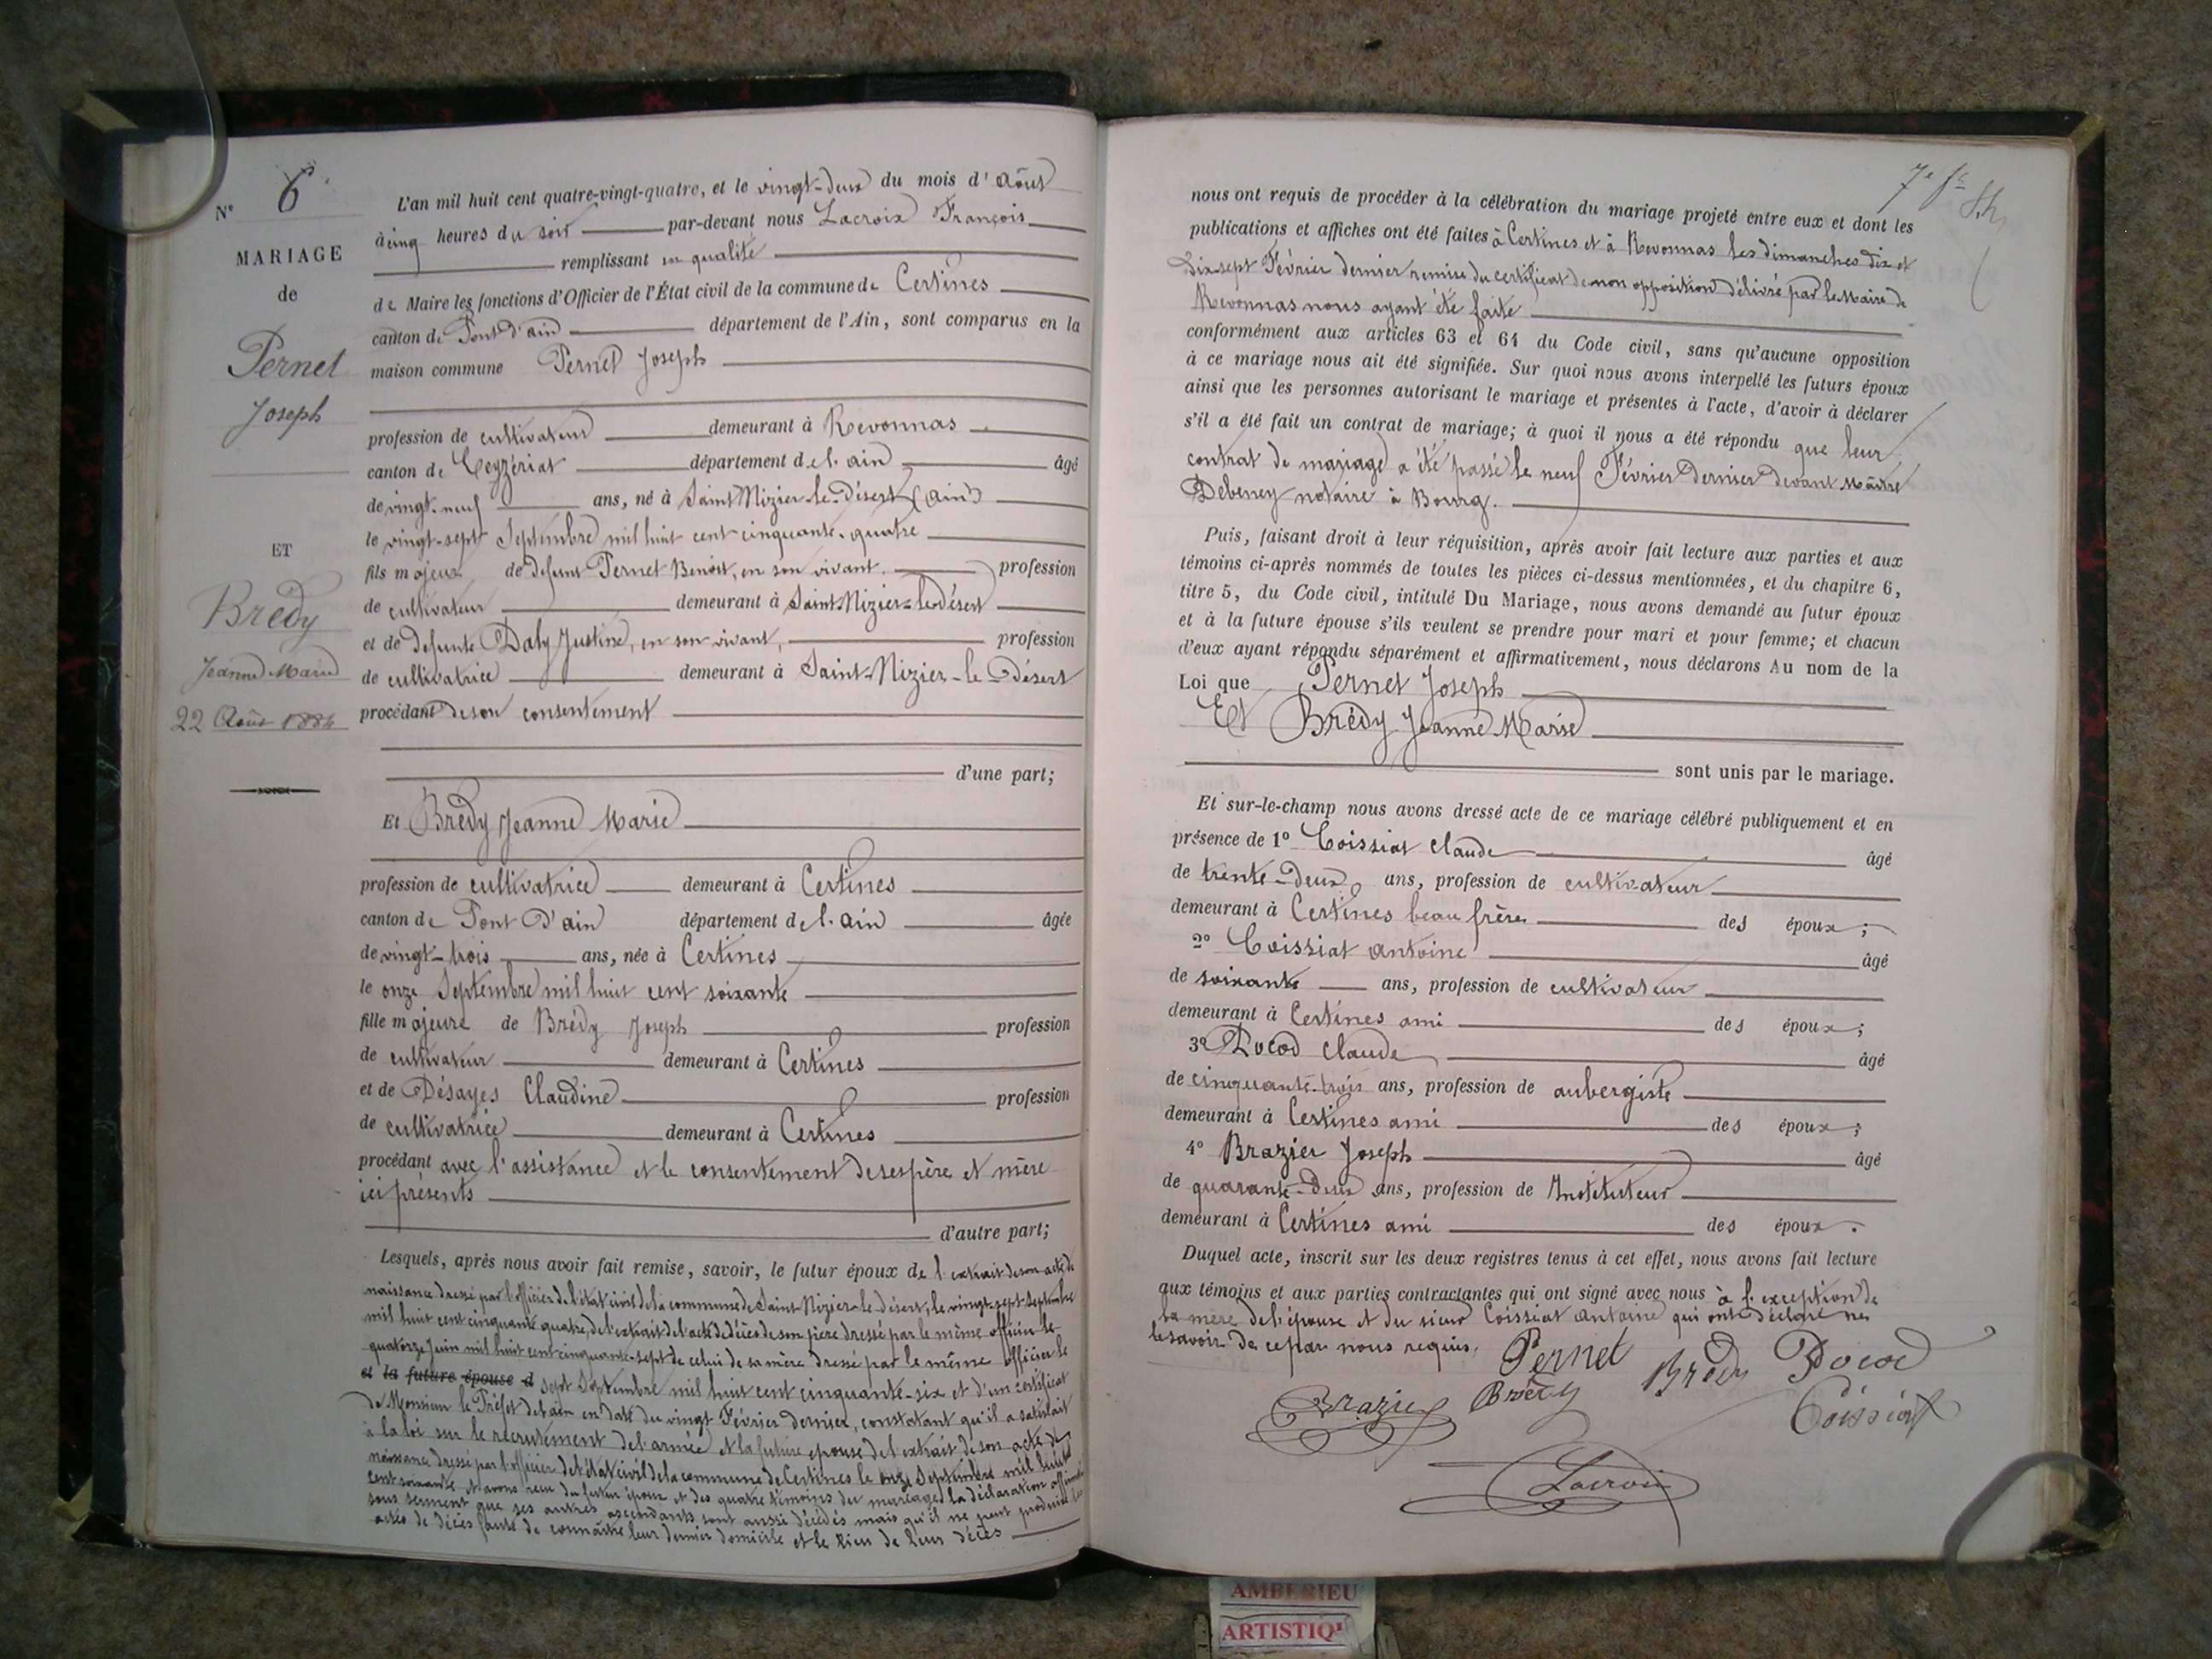 N° 6
MARIAGE
de
Pernet
Joseph
ET
Brédy
Jeanne Marie
22 Août 1884
L'an mil huit cent quatre-vingt-quatre, et le vingt-deux du mois d'Août
à cinq heures du soir par-devant nous Lacroix François
remplissant en qualité
de Maire les fonctions d'Officier de l'État civil de la commune de Certines
canton de Pont d'ain département de l'Ain, sont comparus en la
maison commune Pernet Joseph
profession de cultivateur demeurant à Revonnas
canton de Ceyzériat département de l'ain âgé
de vingt-neuf ans, né à Saint Nizier-le-Désert (ain)
le vingt-sept Septembre mil huit cent cinquante-quatre
fils majeur de defunt Pernet Benoît, en son vivant profession
de cultivateur demeurant à Saint Nizier-le-désert
et de defunte Daly Justine, en son vivant, profession
de cultivatrice demeurant à Saint-Nizier-le-Désert
procédant de son consentement
d'une part;
Et Brédy Jeanne Marie
profession de cultivatrice demeurant à Certines
canton de Pont D'ain département de l'ain âgée
de vingt-trois ans, née à Certines
le onze Septembre mil huit cent soixante
fille majeure de Brédy Joseph profession
de cultivateur demeurant à Certines
et de Désayes Claudine profession
de cultivatrice demeurant à Certines
procédant avec l'assistance et le consentement de ses père et mère
ici présents
d'autre part;
Lesquels, après nous avoir fait remise, savoir, le futur époux de l'extrait de son acte de
naissance dressé par l'officier de l'état civil de la commune de Saint-Nizier-le-désert, le vingt-sept septembre
mil huit cent cinquante quatre, de l'extrait de l'acte de décès de son père dressé par le même officier le
quatorze Juin mil huit cent cinquante-sept de celui de sa mère dressé par le même officier le
et la future épouse d sept Septembre mil huit cent cinquante-six et d'un certificat
de Monsieur le Préfet de l'ain en date du vingt Février dernier, constatant qu'il a satisfait
à la loi sur le recrutement de l'armée et la future épouse de l'extrait de son acte de
naissance dressé par l'officier de l'état civil de la commune de Certines le onze Septembre mil huit
cent soixante et avons reçu du futur époux et des quatre témoins du mariage la déclaration
sous serment que ses autres ascendants sont aussi décédés mais qu'il ne peut produire les
actes de décès faute de connaître leur dernier domicile et le lieu de leur décès
7e
nous ont requis de procéder à la célébration du mariage projeté entre eux et dont les
publications et affiches ont été faites à Certines et à Revonnas les dimanches dix et
dix-sept Février dernier remise du certificat de non opposition délivré par le Maire de
Revonnas nous ayant été faite
conformément aux articles 63 et 64 du Code civil, sans qu'aucune opposition
à ce mariage nous ait été signifiée. Sur quoi nous avons interpellé les futurs époux
ainsi que les personnes autorisant le mariage et présentes à l'acte, d'avoir à déclarer
s'il a été fait un contrat de mariage; à quoi il nous a été répondu que leur
contrat de mariage a été passé le neuf Février dernier devant Maître
Debeney notaire à Bourg.
Puis, faisant droit à leur réquisition, après avoir fait lecture aux parties et aux
témoins ci-après nommés de toutes les pièces ci-dessus mentionnées, et du chapitre 6,
titre 5, du Code civil, intitulé Du Mariage, nous avons demandé au futur époux
et à la future épouse s'ils veulent se prendre pour mari et pour femme; et chacun
d'eux ayant répondu séparément et affirmativement, nous déclarons Au nom de la
Loi que Pernet Joseph
Et Brédy Jeanne Marie
sont unis par le mariage.
Et sur-le-champ nous avons dressé acte de ce mariage célébré publiquement et en
présence de 1° Coissiat Claude âgé
de trente-deux ans, profession de cultivateur
demeurant à Certines beau frère des époux;
2° Coissiat antoine âgé
de soixante ans, profession de cultivateur
demeurant à Certines ami des époux;
3° Pocod Claude âgé
de cinquante-trois ans, profession de aubergiste
demeurant à Certines ami des époux;
4° Brazier Joseph âgé
de quarante-deux ans, profession de Instituteur
demeurant à Certines ami des époux.
Duquel acte, inscrit sur les deux registres tenus à cet effet, nous avons fait lecture
aux témoins et aux parties contractantes qui ont signé avec nous à l'exception de
la mère de l'épouse et du sieur Coissiat Antoine qui ont déclaré ne
le savoir de ce par nous requis.
Pernet Brédy Pocod
Brazier Brédy Coissiat
Lacroix
AMBERIEU
ARTISTIQ